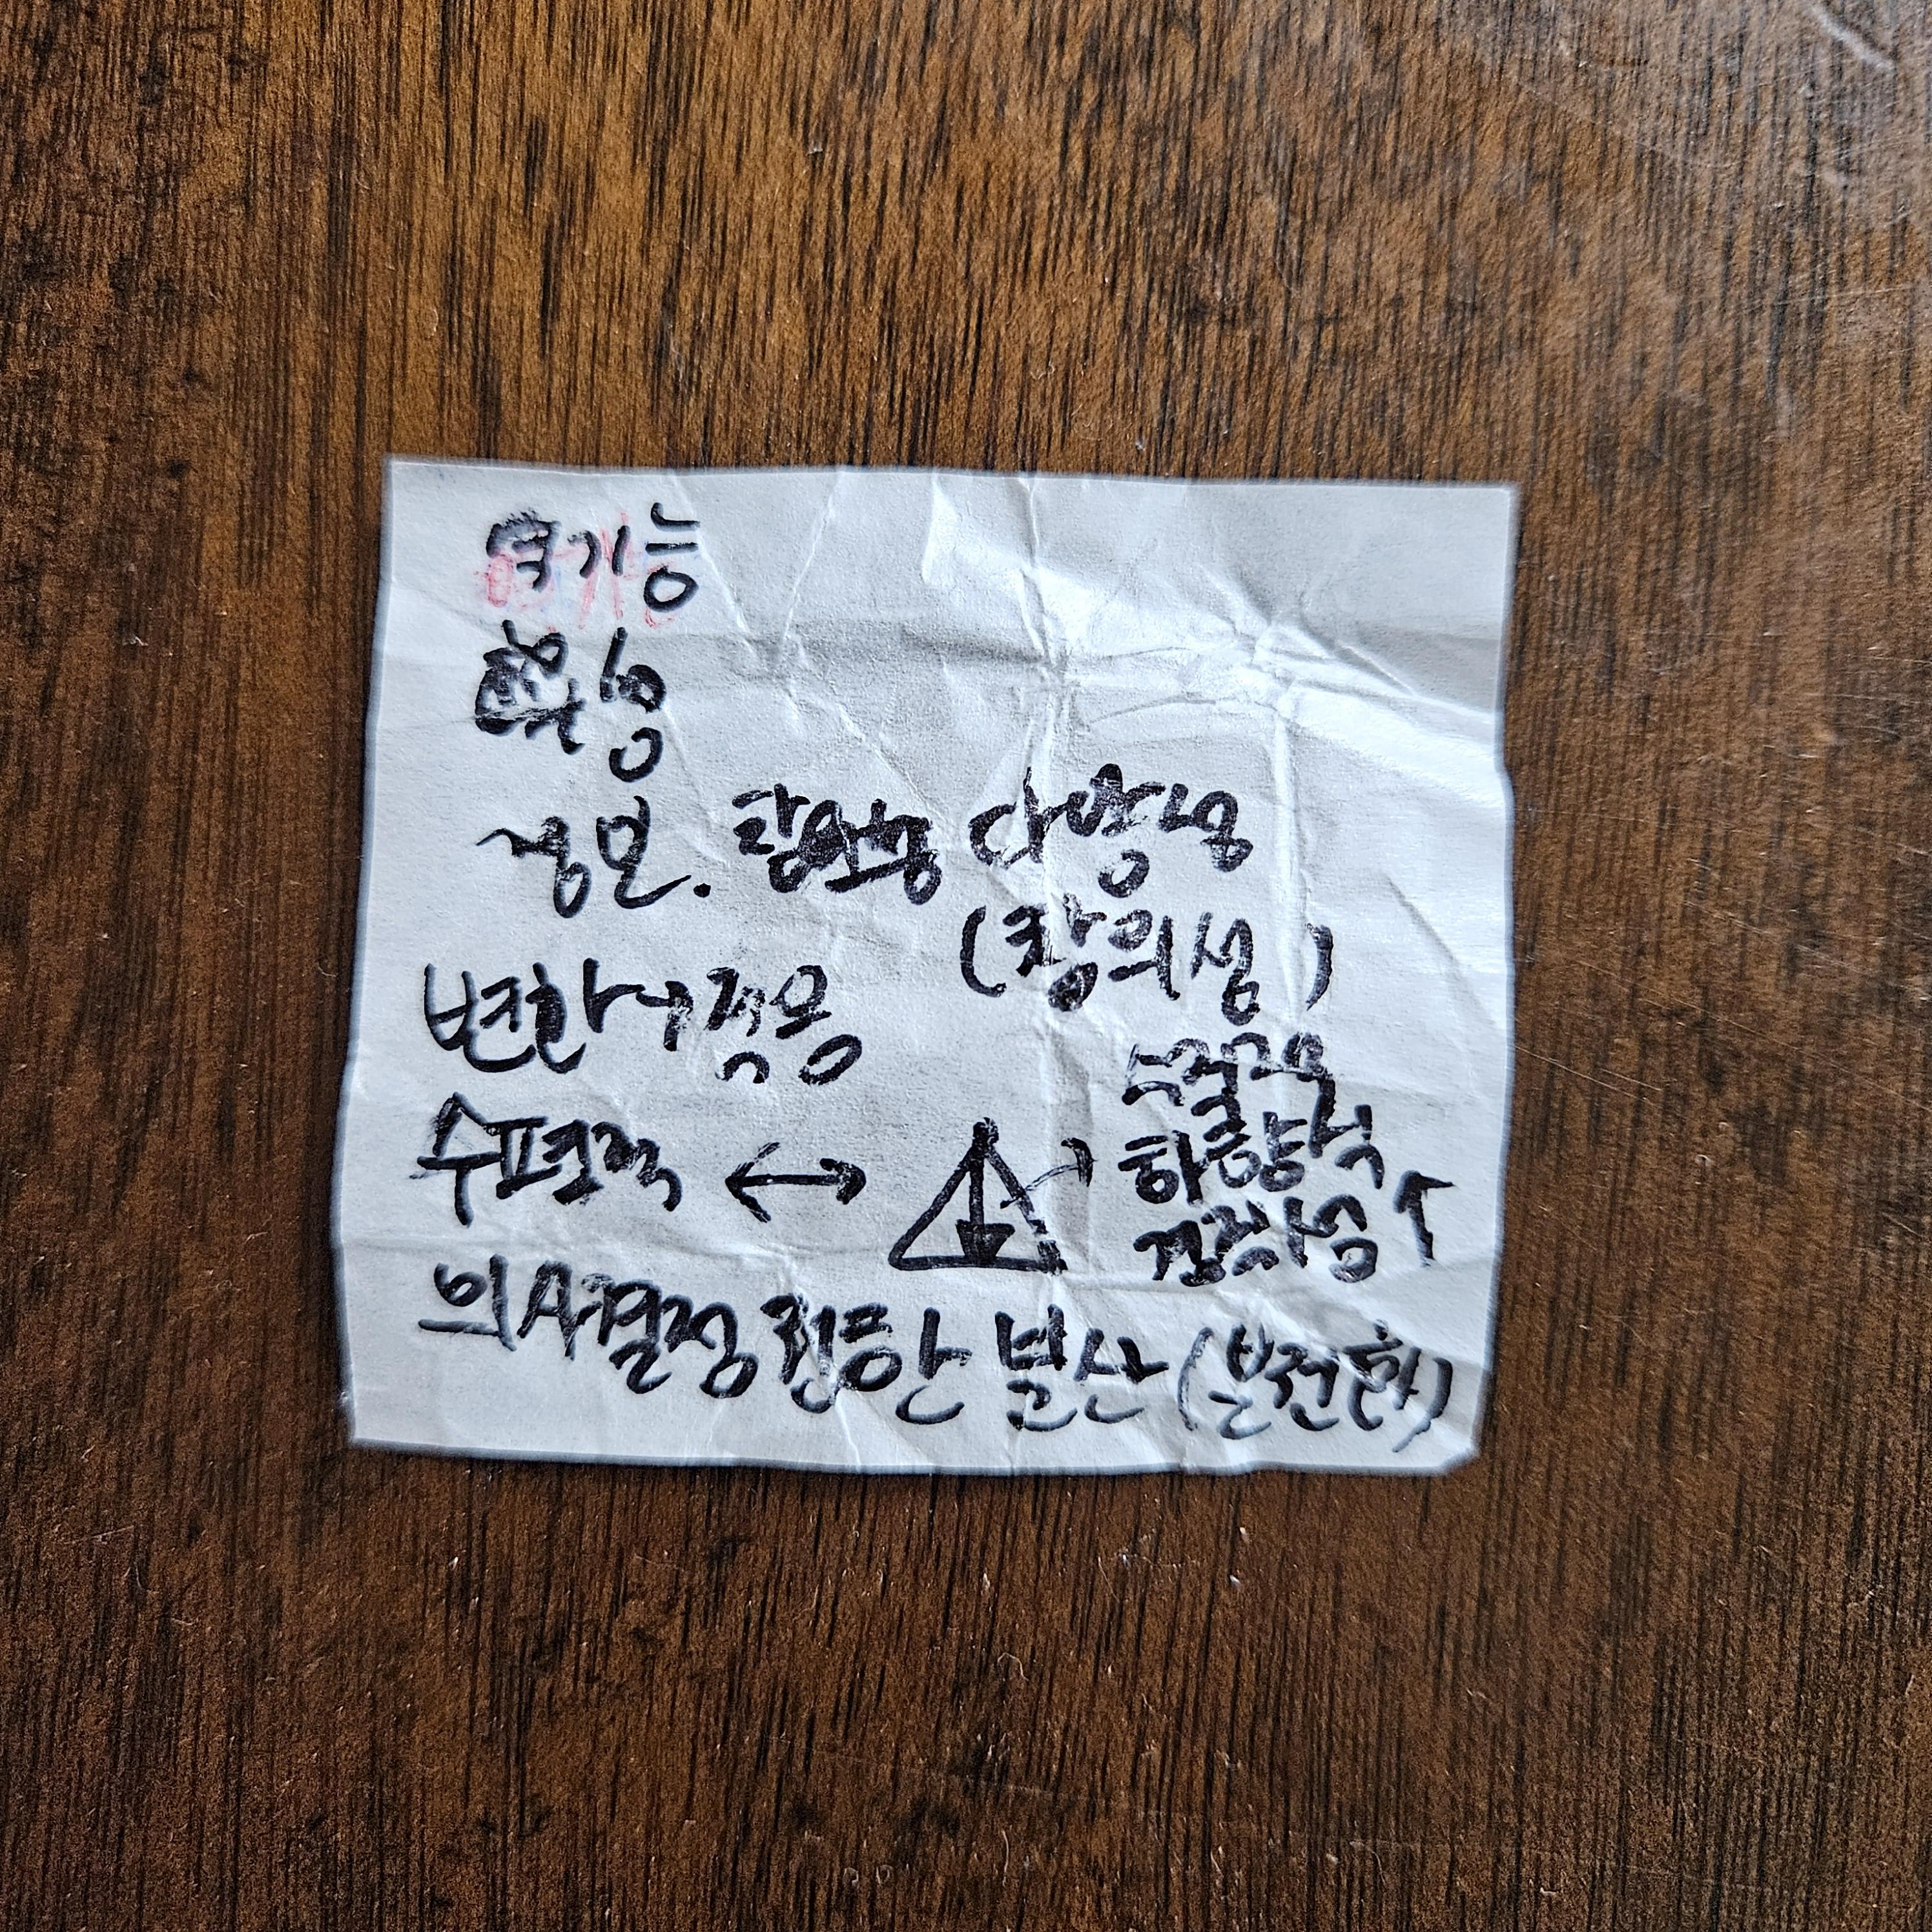 역기능
정보. 다양성
(창의성)
변화 적응
수평적 ↔
하향식
경직성 ↑
의사결정 권한 분산 (분권화)